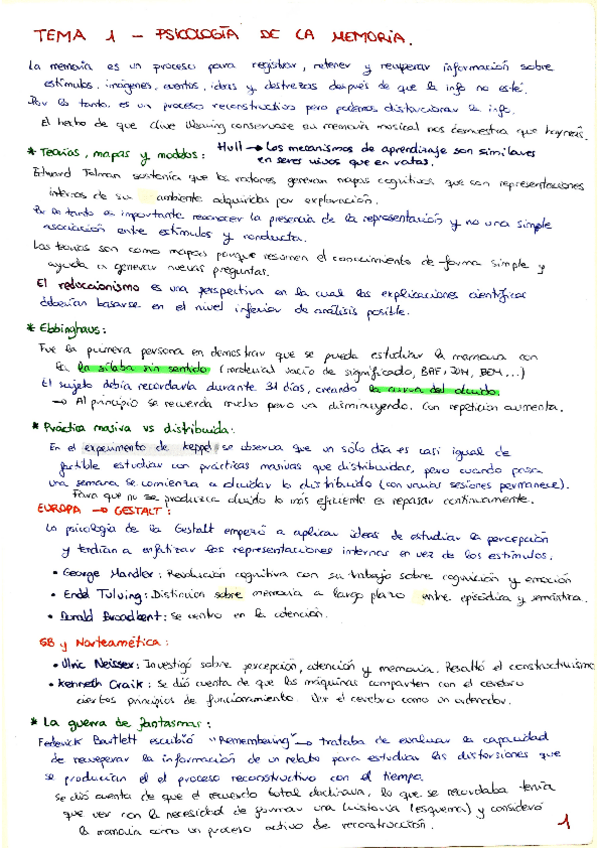 TEMA 1 - PSICOLOGÍA DE LA MEMORIA.
La memoria es un proceso para registrar, retener y recuperar información sobre
estímulos, imágenes, eventos, ideas y destrezas después de que la info no esté.
Por lo tanto, es un proceso reconstructivo pero podemos distorsionar la info.
El hecho de que Clive Wearing conservase su memoria musical nos demuestra que hay más.
* Teorías, mapas y modelos: Hull → Los mecanismos de aprendizaje son similares
en seres vivos que en ratas.
Edward Tolman sostenía que los ratones generan mapas cognitivos que son representaciones
internas de su ambiente adquiridas por exploración.
Por lo tanto es importante reconocer la presencia de la representación y no una simple
asociación entre estímulos y conducta.
Las teorías son como mapas porque resumen el conocimiento de forma simple y
ayuda a generar nuevas preguntas.
El reduccionismo es una perspectiva en la cual las explicaciones científicas
deberían basarse en el nivel inferior de análisis posible.
* Ebbinghaus:
Fue la primera persona en demostrar que se puede estudiar la memoria con
la sílaba sin sentido (material vacío de significado, BAF, ...)
El sujeto debía recordarla durante 31 días, creando la curva del olvido.
→ Al principio se recuerda mucho pero va disminuyendo. Con repetición aumenta.
* Práctica masiva vs distribuida:
En el experimento de Keppel se observa que un sólo día es casi igual de
factible estudiar con prácticas masivas que distribuidas, pero cuando pasa
una semana se comienza a olvidar lo distribuido (con varias sesiones permanece).
Para que no se produzca olvido lo más eficiente es repasar continuamente.
EUROPA → GESTALT:
La psicología de la Gestalt empezó a aplicar ideas de estudiar la percepción
y tendían a enfatizar las representaciones internas en vez de los estímulos.
• George Mandler: Revolución cognitiva con su trabajo sobre cognición y emoción
• Endel Tulving: Distinción sobre memoria a largo plazo entre episódica y semántica.
• Donald Broadbent: Se centro en la atención.
GB y Norteamética:
• Ulric Neisser: Investigó sobre percepción, atención y memoria. Resaltó el constructivismo
• Kenneth Craik: Se dió cuenta de que las máquinas comparten con el cerebro
ciertos principios de funcionamiento. Ver el cerebro como un ordenador.
* La guerra de fantasmas:
Federick Bartlett escribió "Remembering" → trataba de evaluar la capacidad
de recuperar la información de un relato para estudiar las distorsiones que
se producían el el proceso reconstructivo con el tiempo.
Se dió cuenta de que el recuerdo total declinaba, lo que se recordaba tenía
que ver con la necesidad de formar una historia (esquema) y consideró
la memoria como un proceso activo de reconstrucción.
1